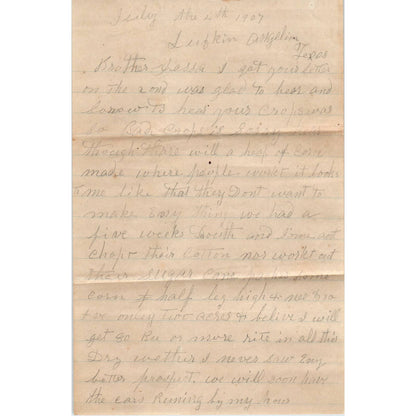 July the 4th 1907
Lufkin Angelina
Texas
Brother I got your letter
on the 2ond was glad to hear and
sorrow to hear your crops was
so Bad crops is
though thare will a heap of corn
made where people workt it looks
to me like that they Dont want to
make Eny thing we had a
five weeks and some not
chop their Cotton nor workt out
their sugar cane some
corn half leg high
onley two acres I believe I will
get 80 Bu or more rite in all this
Dry wether I never saw Eny
better prospect. we will soon have
the cars Running by my hous